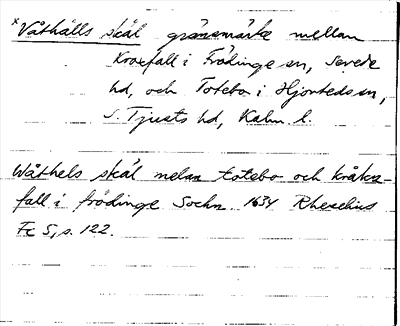 *Våthålls skål gränsmärke mellan
Kroxfall i Frödinge sn, Sevede
hd, och Totebo i Hjorteds sn,
S. Tjusts hd, Kalm. l.
Wåthels skål melan totebo och kråkx-
fall i frödinge Sochn 1634 Rhezelius
Fc 5, s. 122.